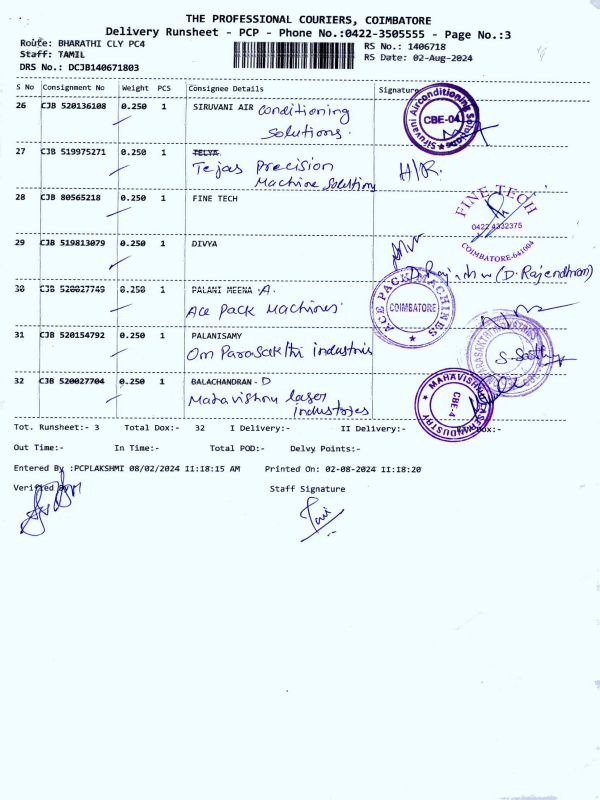 THE PROFESSIONAL COURIERS, COIMBATORE
Delivery Runsheet - PCP - Phone No.:0422-3505555 - Page No.:3
Route: BHARATHI CLY PC4 RS No.: 1406718
Staff: TAMIL RS Date: 02-Aug-2024
DRS No.: DCJB140671803
S No Consignment No Weight PCS Consignee Details Signature
26 CJB 520136108 0.250 1 SIRUVANI AIR Conditioning
Solutions.
Siruvani Airconditioning Solutions
CBE-04
27 CJB 519975271 0.250 1 TEJYA
Tejas Precision
Machine Solution
H/R.
28 CJB 80565218 0.250 1 FINE TECH
FINE TECH
0422 4332375
COIMBATORE-641004
29 CJB 519813079 0.250 1 DIVYA
(D. Rajendhran)
30 CJB 520027749 0.250 1 PALANI MEENA .A.
Ace Pack Machines
ACE PACK MACHINES
COIMBATORE
31 CJB 520154792 0.250 1 PALANISAMY
Om ParaSakthi industries
32 CJB 520027704 0.250 1 BALACHANDRAN - D
Mahavishnu laser
Industries
MAHAVISHNU LASER INDUSTRY
CBE-4
Tot. Runsheet:- 3 Total Dox:- 32 I Delivery:- II Delivery:- Dox:-
Out Time:- In Time:- Total POD:- Delvy Points:-
Entered By :PCPLAKSHMI 08/02/2024 11:18:15 AM Printed On: 02-08-2024 11:18:20
Verified By Staff Signature